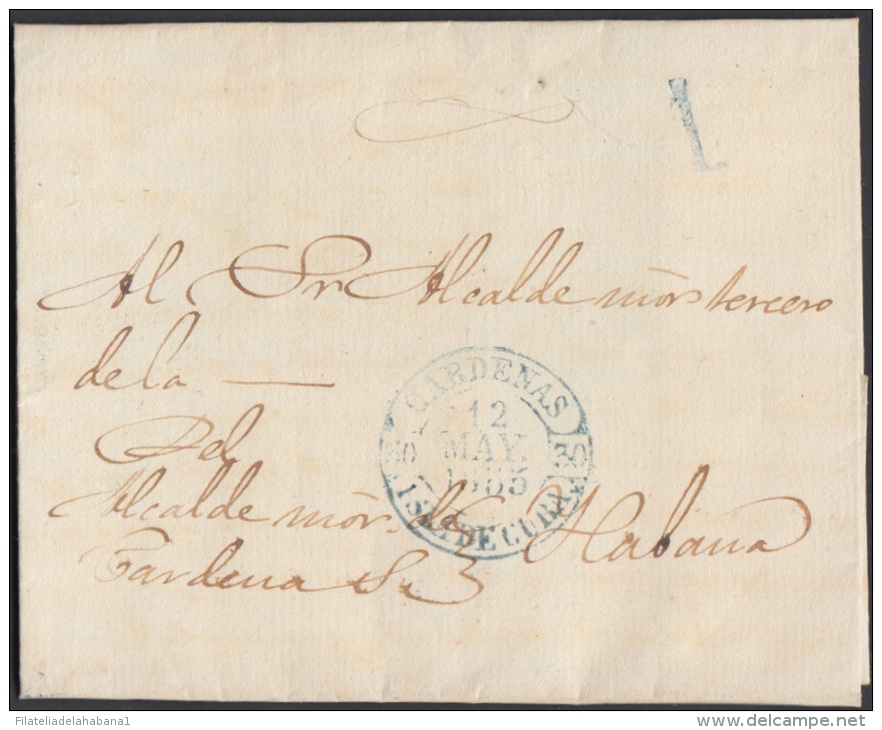 1
Al Sr Alcalde mor tercero
de la
CARDENAS
12
MAY.
1855
30 30
ISLA DE CUBA
Del
Alcalde mor. de Habana
Cardenas
Filateliadelahabana1
delcampe.net